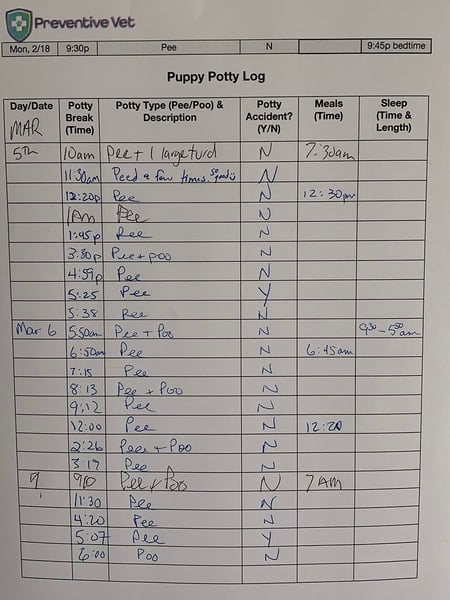 Preventive Vet
Mon, 2/18 9:30p Pee N 9:45p bedtime
Puppy Potty Log
Day/Date Potty Break (Time) Potty Type (Pee/Poo) & Description Potty Accident? (Y/N) Meals (Time) Sleep (Time & Length)
MAR
5th 10am Pee + 1 large turd N 7:30am
11:30am Peed a few times N
12:20p Pee N 12:30pm
1Am Pee N
1:45p Pee N
3:30p Pee + poo N
4:59p Pee N
5:25 Pee Y
5:38 Pee N
Mar 6 550am Pee + Poo N 930 - 550am
6:50am Pee N 6:45am
7:15 Pee N
8:13 Pee + Poo N
9:12 Pee N
12:00 Pee N 12:20
2:26 Pee + Poo N
3:17 Pee N
9 910 Pee + Poo N 7AM
11:30 Pee N
4:20 Pee N
5:07 Pee Y
6:00 Poo N